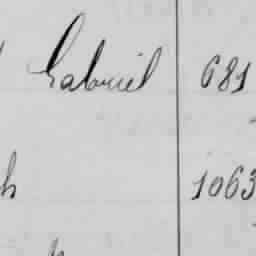 Gabriel 681
h 1063